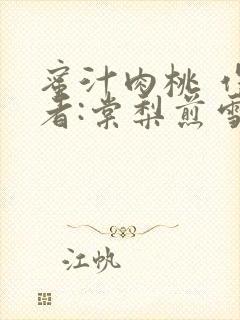 蜜汁肉桃 作
者:棠梨煎雪
江帆